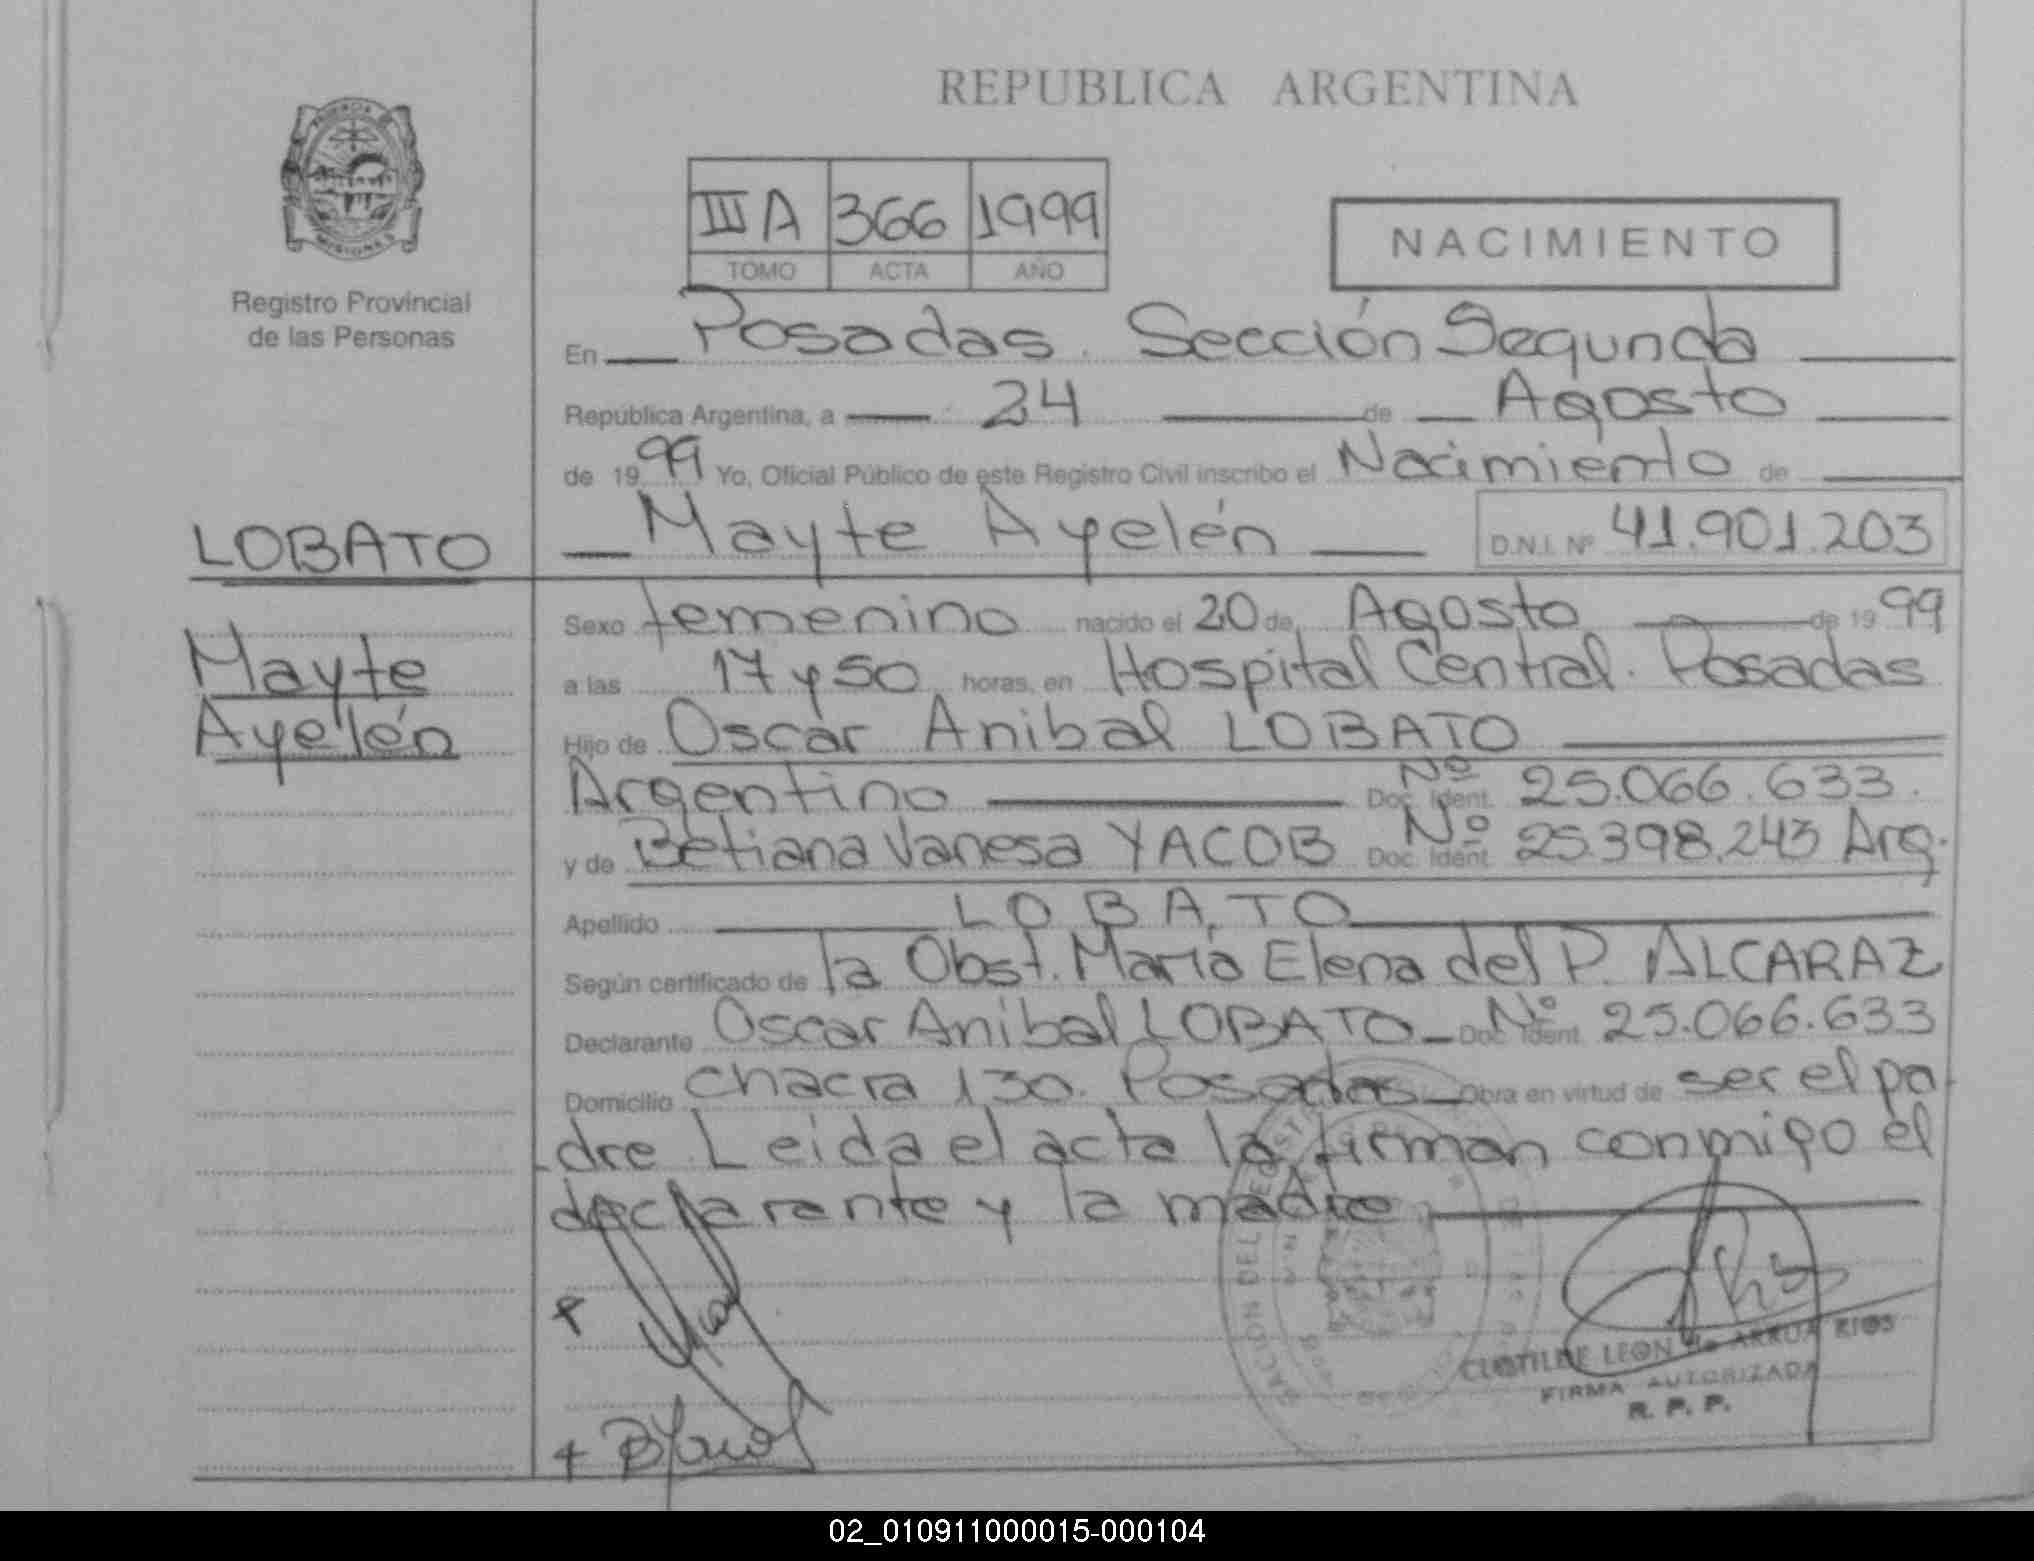 REPUBLICA ARGENTINA
MISIONES
Registro Provincial
de las Personas
III A 366 1999
TOMO ACTA AÑO
NACIMIENTO
En Posadas. Sección Segunda
República Argentina, a 24 de Agosto
de 1999 Yo, Oficial Público de este Registro Civil inscribo el Nacimiento de
LOBATO
Mayte Ayelén D.N.I. Nº 41.901.203
Mayte
Ayelén
Sexo femenino nacido el 20 de Agosto de 1999
a las 17 y 50 horas, en Hospital Central. Posadas
Hijo de Oscar Anibal LOBATO
Argentino Doc. Ident. Nº 25.066.633.
y de Betiana Vanesa YACOB Doc. Ident. Nº 25.398.243 Arg.
Apellido LOBATO
Según certificado de la Obst. María Elena del P. ALCARAZ
Declarante Oscar Anibal LOBATO Doc. Ident. Nº 25.066.633
Domicilio chacra 130. Posadas Obra en virtud de ser el pa-
dre. Leida el acta la firman conmigo el
declarante y la madre
CLOTILDE LEON de ARRUA RIOS
FIRMA AUTORIZADA
R. P. P.
02_010911000015-000104